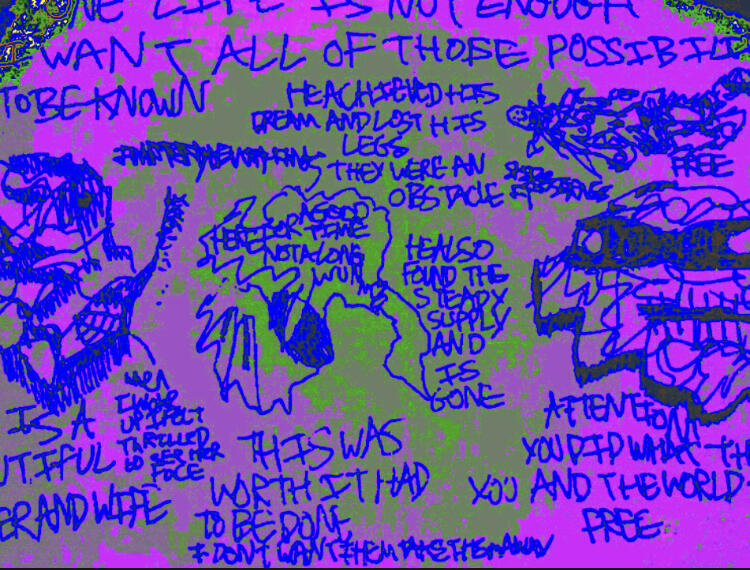 LIFE IS NOT ENOUGH
WANT ALL OF THOSE POSSIBILI
TO BE KNOWN
HE ACHIEVED HIS
DREAM AND LOST HIS
LEGS
THEY WERE AN
OBSTACLE
FREE
A GOOD
HERE FOR TIME
NOT A LONG
WUN
HE ALSO
FOUND THE
STEADY
SUPPLY
AND
IS
GONE
IS A
UTIFUL
ER AND WIFE
WHEN
I WOKE
UP I FELT
THRILLED
TO SEE HER
FACE
THIS WAS
WORTH IT HAD
TO BE DONE
I DON'T WANT THEM TAKE THEM AWAY
ATTENTION
YOU DID WHAT TH
YOU AND THE WORLD
FREE